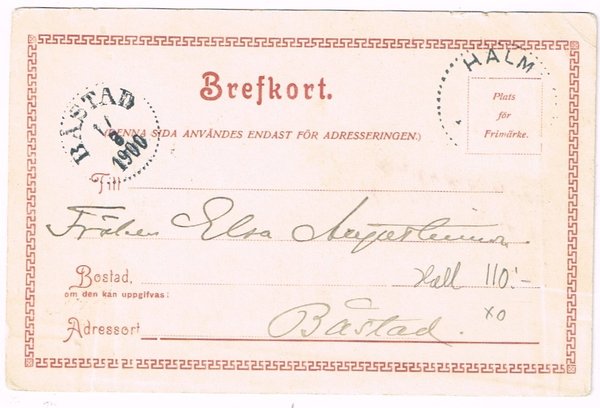 HALM
Brefkort.
Plats
för
Frimärke.
BÅSTAD
1900
(DENNA SIDA ANVÄNDES ENDAST FÖR ADRESSERINGEN.)
Till
Fröken Elsa
Bostad,
om den kan uppgifvas:
Hall 110:-
XO
Adressort Båstad.